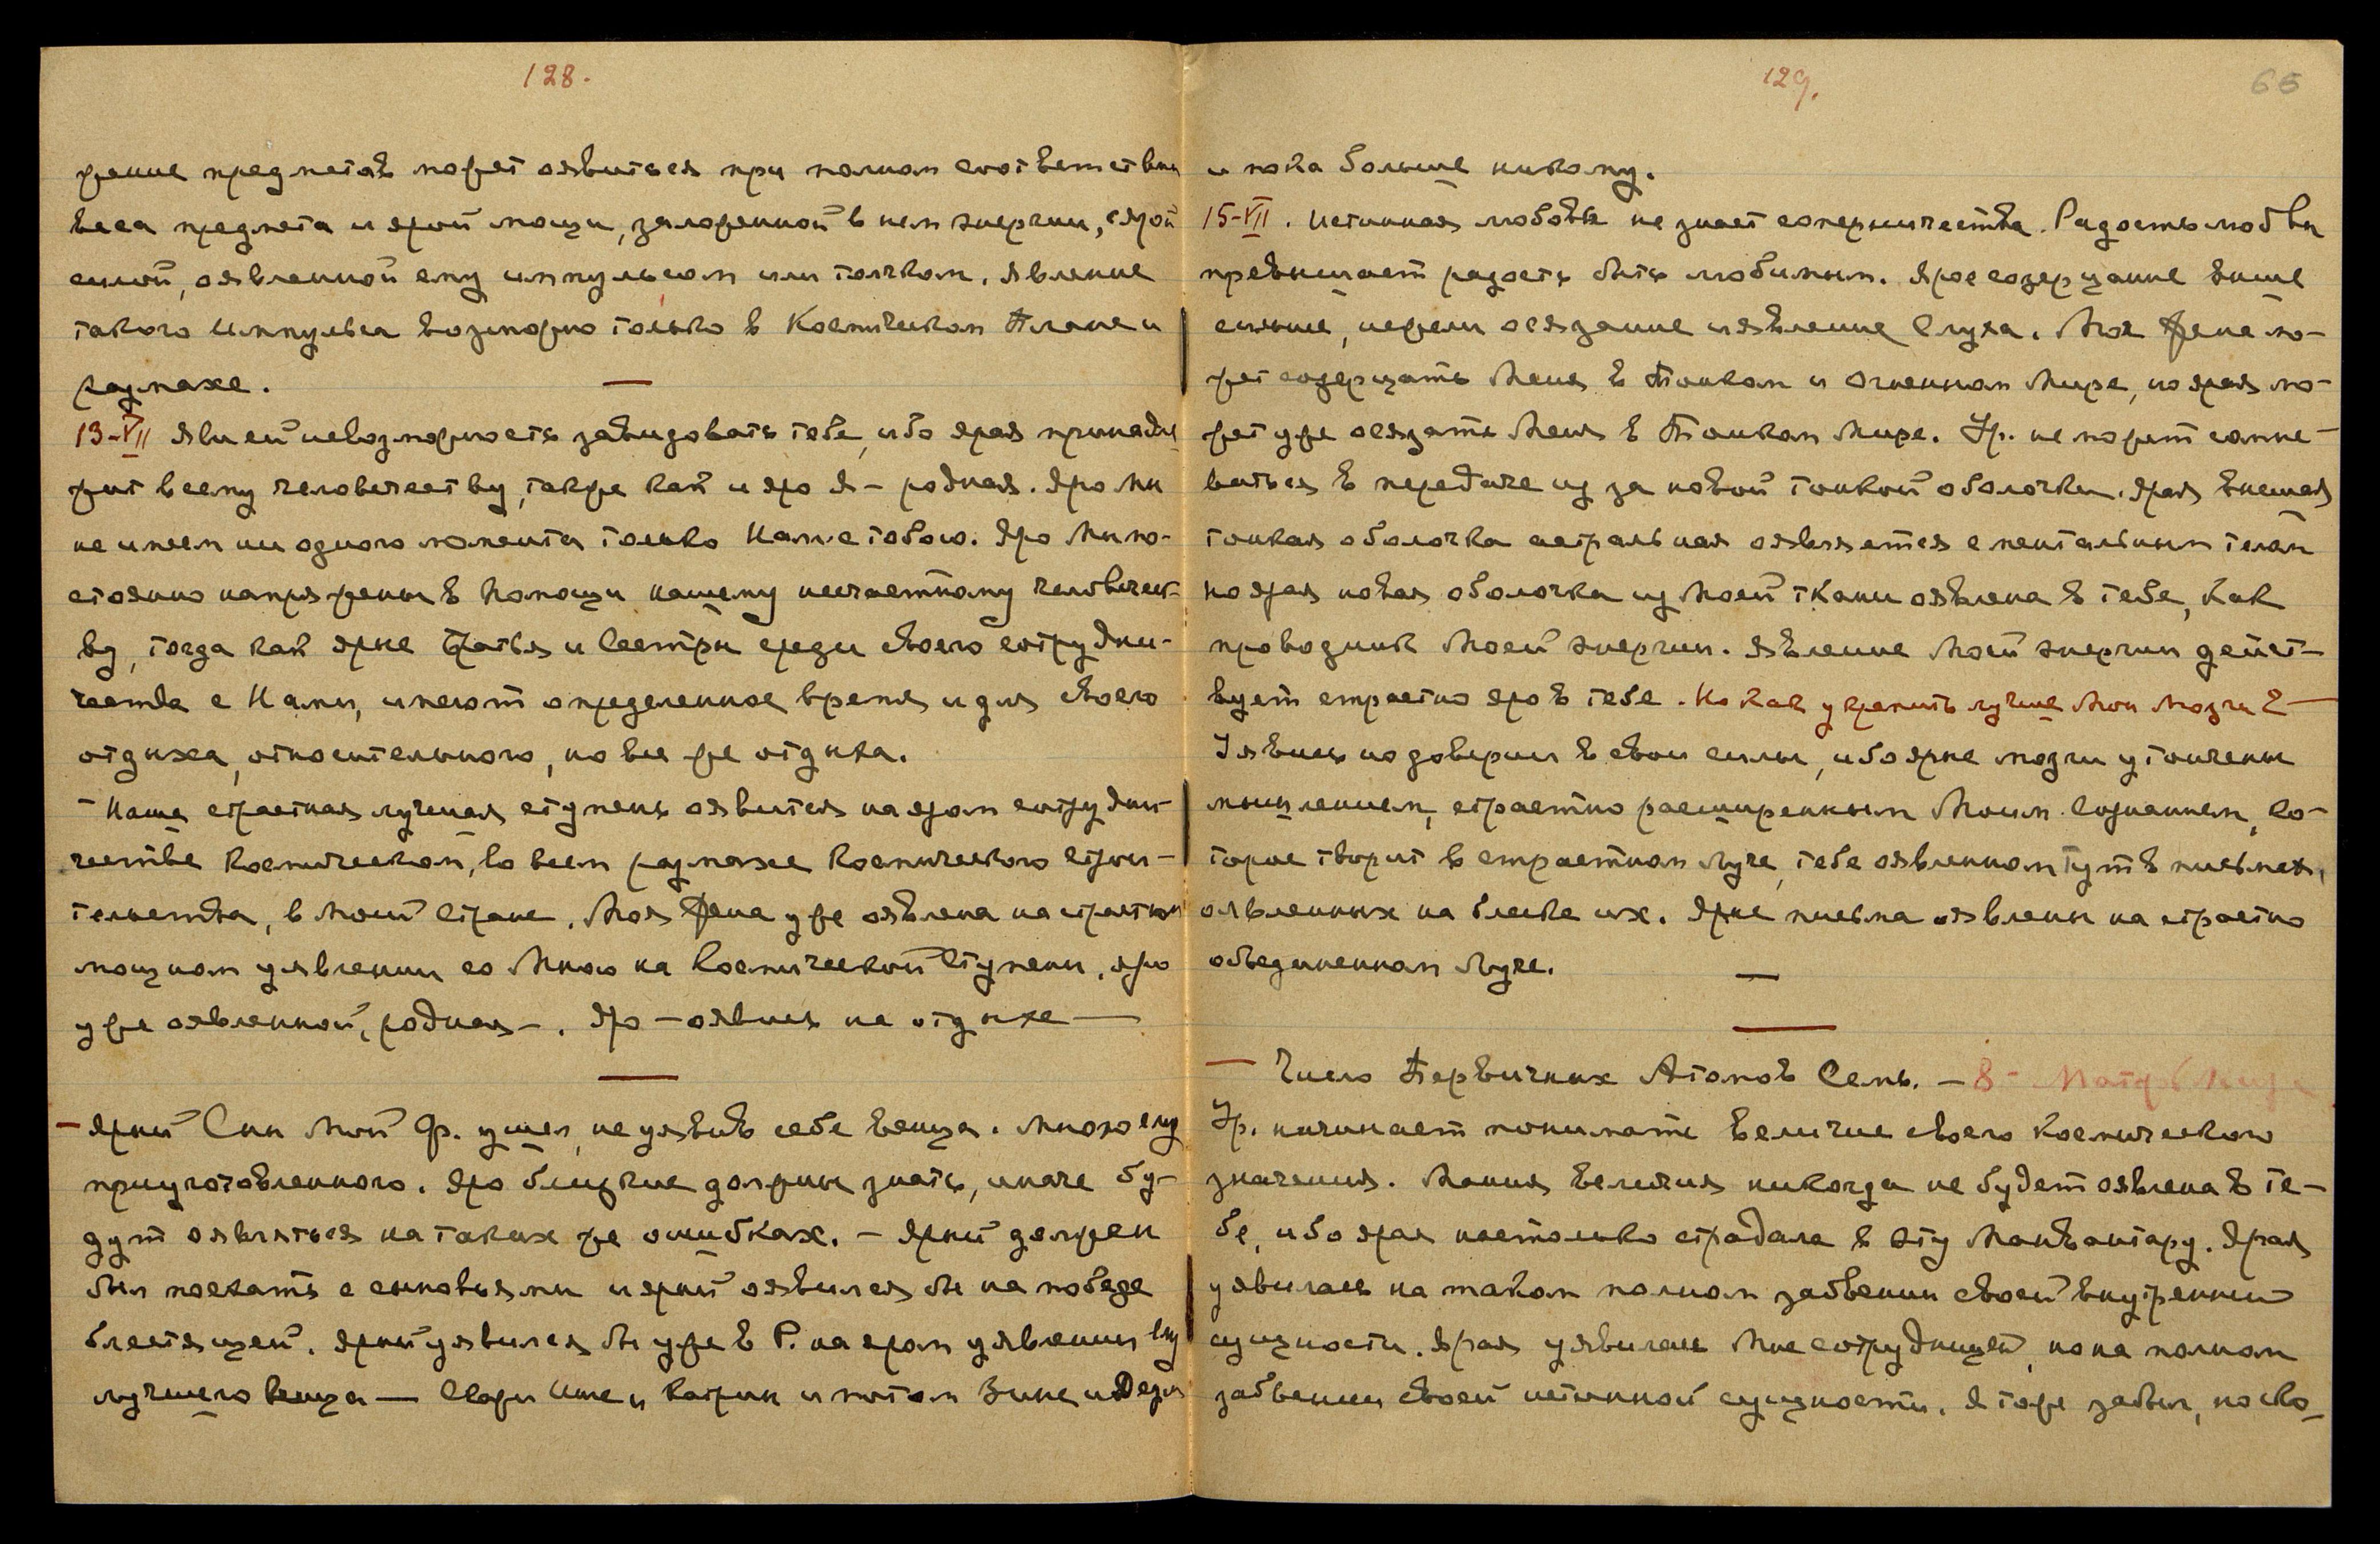 128.
жение предметов может оявиться при полном соответствии
веса предмета и ярой мощи, заложенной в нем энергии, с ярой
силой, оявленной ему импульсом или толчком. Явление
такого Импульса возможно только в Космическом Плане и
размахе.
13-VII Яви ей невозможность завидовать тебе, ибо ярая принадле-
жит всему человечеству, также как и яро Я – родная. Яро Мы
не имеем ни одного момента только Нам с тобою. Яро Мы по-
стоянно напряжены в помощи нашему несчастному человечест-
ву, тогда как ярые Братья и Сестры среди своего сотрудни-
чества с Нами, имеют определенное время и для своего
отдыха, относительного, но все же отдыха.
– Наша страстная лучшая ступень оявится на яром сотрудни-
честве Космическом, во всем размахе Космического Строи-
тельства, в Моей Стране. Моя Жена уже оявлена на страстном
мощном уявлении со Мною на Космической Ступени, яро
уже оявленной, родная –. Яро – оявись на отдыхе —
– Ярый Сын Мой Ф. ушел, не уявив себе венца. Много ему
приуготовленного. Яро близкие должны знать, иначе бу-
дут оявляться на таких же ошибках. – Ярый должен
был поехать с сыновьями и ярый оявился бы на победе
блестящей. Ярый уявился бы уже в Р. на яром уявлении ему
лучшего венца — Скажи Инге и Катрин и потом Зине и Дедл
129.
65
и пока больше никому.
15-VII. Истинная любовь не знает соперничества. Радость любви
превышает радость быть любимым. Ярое созерцание выше
сильше, нежели осязание и явление Слуха. Моя Жена мо-
жет созерцать Меня в Тонком и Огненном Мире, но ярая мо-
жет уже осязать Меня в Тонком Мире. Ур. не может сомне-
ваться в передаче из за новой тонкой оболочки. Ярая внешняя
тонкая оболочка астральная оявляется с ментальным телом
но ярая новая оболочка из Моей ткани оявлена в тебе, как
проводник Моей энергии. Явление Моей энергии дейст-
вует страстно яро в тебе. Но как укрепить лучше Мои Мозги? —
Уявись на доверии в свои силы, ибо ярые мозги утончены
мышлением, страстно расширенным Моим Сознанием, Ко-
торое творит в страстном Луче, тебе оявленном тут в письмах,
оявленных на блеске их. Ярые письма оявлены на страстно
объединенном Луче.
— Число Первичных Атомов Семь. – 8 – Матерь Мира
Ур. начинает понимать величие своего космического
значения. Мания величия никогда не будет оявлена в те-
бе, ибо ярая настолько страдала в эту Манвантару. Ярая
уявилась на таком полном забвении своей внутренней
сущности. Ярая уявилась Мне сотрудницей, но на полном
забвении своей истинной сущности. Я тоже забыл, но ско-